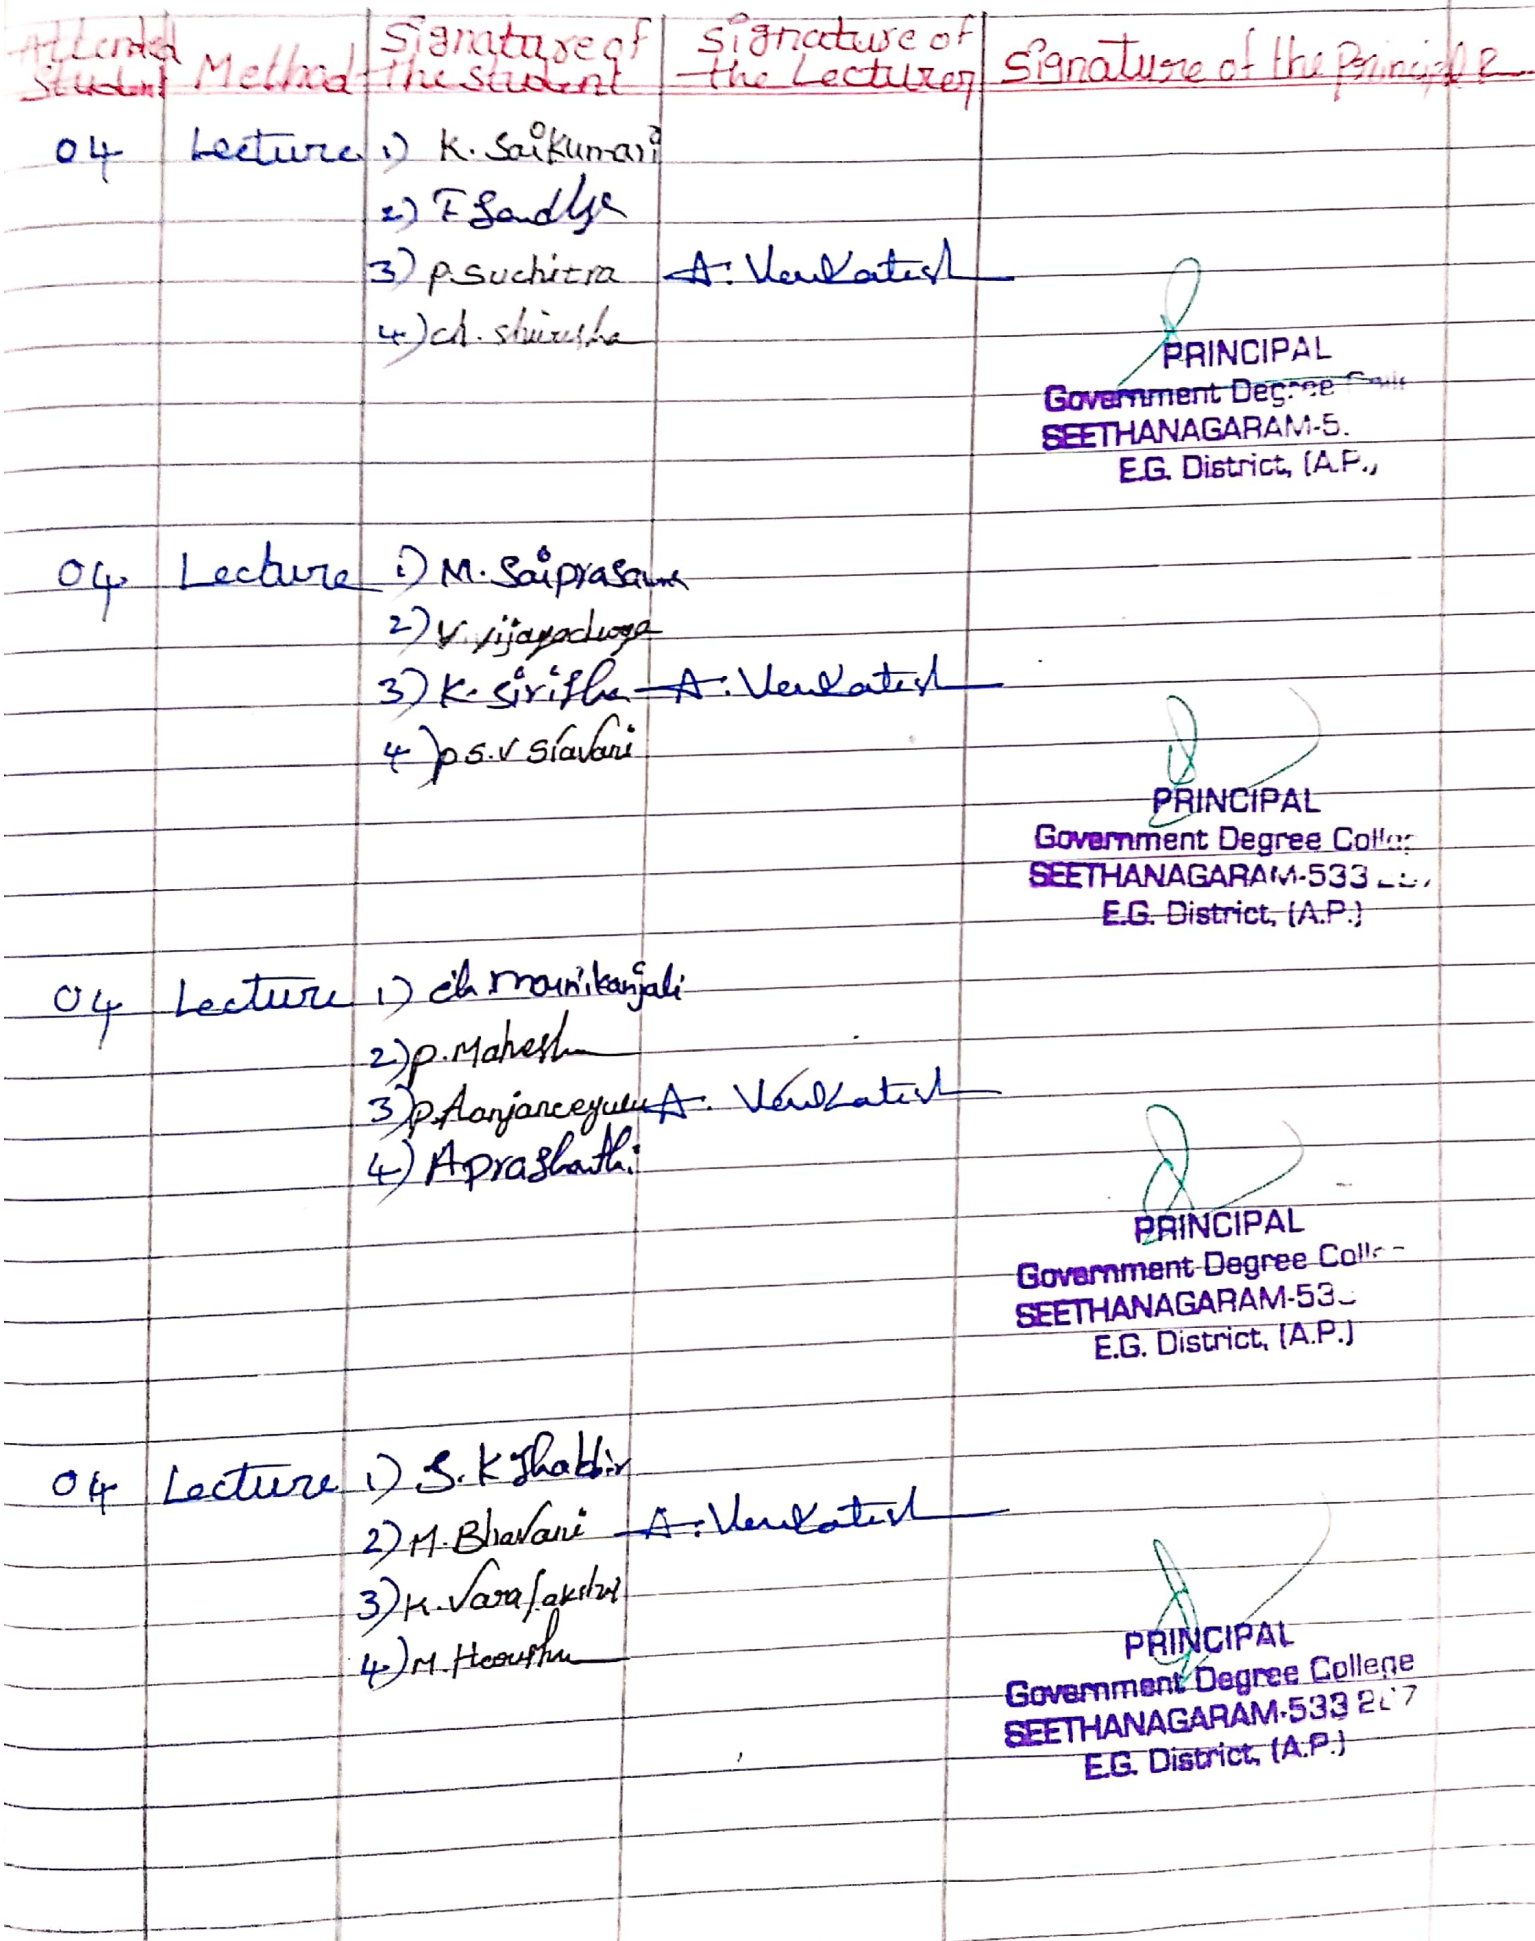 Attended Student Method Signature of the student Signature of the Lecturer Signature of the Principle
04 Lecture 1) K. Saikumari
2) Sandhya
3) P. Suchitra A. Venkatesh
4) ch. shirisha
PRINCIPAL
Government Degree
SEETHANAGARAM-5
E.G. District, (A.P.,
04 Lecture 1) M. Saiprasanna
2) V. Vijayadurga
3) K. Sirisha A. Venkatesh
4) P S.V Sravani
PRINCIPAL
Government Degree
SEETHANAGARAM-533
E.G. District, (A.P.)
04 Lecture 1) ch manikanjali
2) P. Mahesh
3) P. Aanjaneeyulu A. Venkatesh
4) A prashanthi
PRINCIPAL
Government Degree
SEETHANAGARAM-53
E.G. District, (A.P.)
04 Lecture 1) S. K Shabbir
2) M. Bhavani A. Venkatesh
3) K. Varalakshmi
4) M.
PRINCIPAL
Government Degree College
SEETHANAGARAM-533
E.G. District, (A.P.)